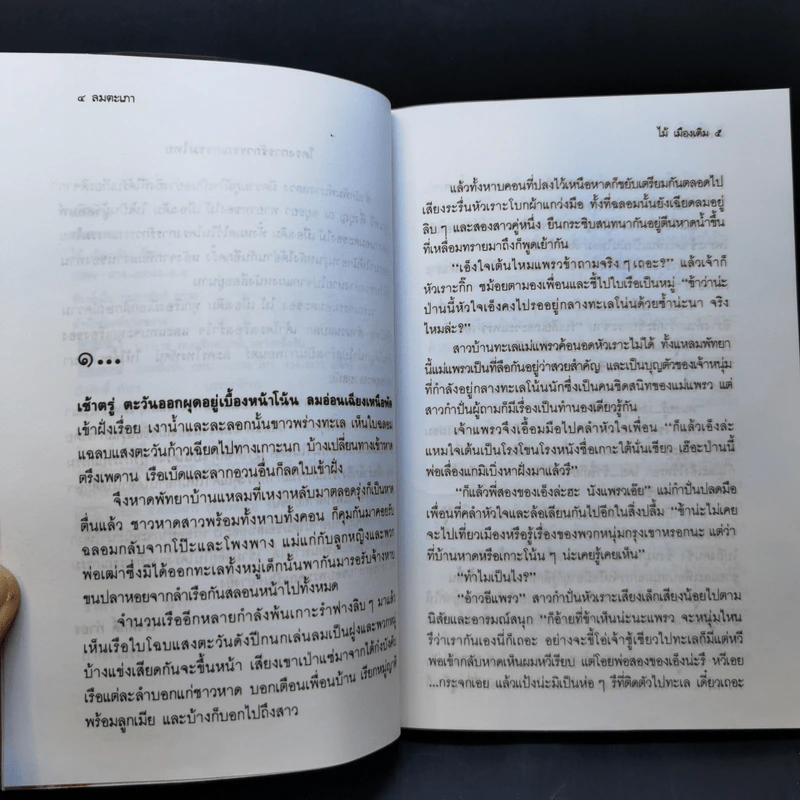 ๔ ลมตะเภา
๑...
เช้าตรู่ ตะวันออกผุดอยู่เบื้องหน้าโน้น ลมอ่อนเฉียงเหนือพัด
เข้าฝั่งเรื่อย เงาน้ำและละลอกนั้นขาวพร่างทะเล เห็นใบฉลอม
แฉลบแสงตะวันก้าวเฉียดไปทางเกาะนก บ้างเปลี่ยนทางเข้าหาด
ตรึงเพดาน เรือเบ็ดและลากอวนอื่นก็ลดใบเข้าฝั่ง
จึงหาดพัทยาบ้านแหลมที่เหงาหลับมาตลอดรุ่งก็เป็นหาด
ตื่นแล้ว ชาวหาดสาวพร้อมทั้งหาบทั้งคอน ก็คุมกันมาคอยรับ
ฉลอมกลับจากโป๊ะและโพงพาง แม่แก่กับลูกหญิงและพวก
พ่อเฒ่าซึ่งมิได้ออกทะเลทั้งหมู่เด็กนั้นพากันมารอรับจ้างหาบ
ขนปลาหอยจากลำเรือกันสลอนหน้าไปทั้งหมด
จำนวนเรืออีกหลายกำลังพ้นเกาะรำฟางลิบ ๆ มาแล้ว
เห็นเรือใบโฉบแสงตะวันดังปีกนกเล่นลมเป็นฝูงและพวกหมู่
บ้างแข่งเสียดกันจะขึ้นหน้า เสียงเขาเป่าแซ่มาจากใต้กงบังคับ
เรือแต่ละลำบอกแก่ชาวหาด บอกเตือนเพื่อนบ้าน เรียกหมู่ญาติ
พร้อมลูกเมีย และบ้างก็บอกไปถึงสาว
ไม้ เมืองเดิม ๕
แล้วทั้งหาบคอนที่ปลงไว้เหนือหาดก็ขยับเตรียมกันตลอดไป
เสียงระรื่นหัวเราะโบกผ้าแกว่งมือ ทั้งที่ฉลอมนั้นยังเฉียดลมอยู่
ลิบ ๆ และสองสาวคู่หนึ่ง ยืนกระซิบสนทนากันอยู่ตีนหาดน้ำขึ้น
ที่เหลื่อมทรายมาถึงก็พูดเย้ากัน
“เอ็งใจเต้นไหมแพรวข้าถามจริง ๆ เถอะ?” แล้วเจ้าก็
หัวเราะกิ๊ก ชม้อยตามองเพื่อนและชี้ไปใบเรือเป็นหมู่ “ข้าว่าน่ะ
ป่านนี้หัวใจเอ็งคงไปรออยู่กลางทะเลโน่นด้วยซ้ำน่ะนา จริง
ไหมล่ะ?”
สาวบ้านทะเลแม่แพรวค้อนอดหัวเราะไม่ได้ ทั้งแหลมพัทยา
นี้แม่แพรวเป็นที่ลือกันอยู่ว่าสวยสำคัญ และเป็นบุญตัวของเจ้าหนุ่ม
ที่กำลังอยู่กลางทะเลโน้นนักซึ่งเป็นคนชิดสนิทของแม่แพรว แต่
สาวกำปั่นผู้ถามก็มีเรื่องเป็นทำนองเดียวรู้กัน
เจ้าแพรวจึงเอื้อมมือไปคลำหัวใจเพื่อน “ก็แล้วเอ็งล่ะ
แหมใจเต้นเป็นโรงโขนโรงหนังซื่อเกาะได้นั่นเชียว เฮือะป่านนี้
พ่อเลื่องแกมิเบิ่งหาฝั่งมาแล้วรึ”
“ก็แล้วพี่สองของเอ็งล่ะฮะ นังแพรวเอ๊ย” แม่กำปั่นปลดมือ
เพื่อนที่คลำหัวใจและล้อเลียนกันไปอีกในสิ่งปลื้ม “ข้าน่ะไม่เคย
จะไปเที่ยวเมืองหรือรู้เรื่องของพวกหนุ่มกรุงเขาหรอกนะ แต่ว่า
ที่บ้านหาดหรือเกาะโน้น ๆ น่ะเคยรู้เคยเห็น”
“ทำไมเป็นไง?”
“อ้าวอีแพรว” สาวกำปั่นหัวเราะเสียงเล็กเสียงน้อยไปตาม
นิสัยและอารมณ์สนุก “ก็อ้ายที่ข้าเห็นน่ะนะแพรว จะหนุ่มไหน
รึว่าเรากันเองนี่ก็เถอะ อย่างจะขี้โอ่เจ้าชู้เชียวไปทะเลก็มีแต่หวี
พอเข้ากลับหาดเห็นผมหวีเรียบ แต่โอยพ่อสองของเอ็งน่ะรึ หวีเอย
...กระจกเอย แล้วแป้งน่ะมิเป็นห่อ ๆ รึที่ติดตัวไปทะเล เดี๋ยวเถอะ